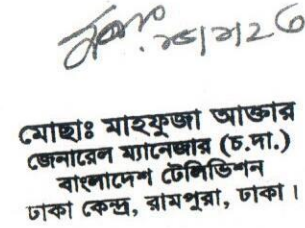 মোছাঃ মাহফুজা আক্তার
জেনারেল ম্যানেজার (চ.দা.)
বাংলাদেশ টেলিভিশন
ঢাকা কেন্দ্র, রামপুরা, ঢাকা।